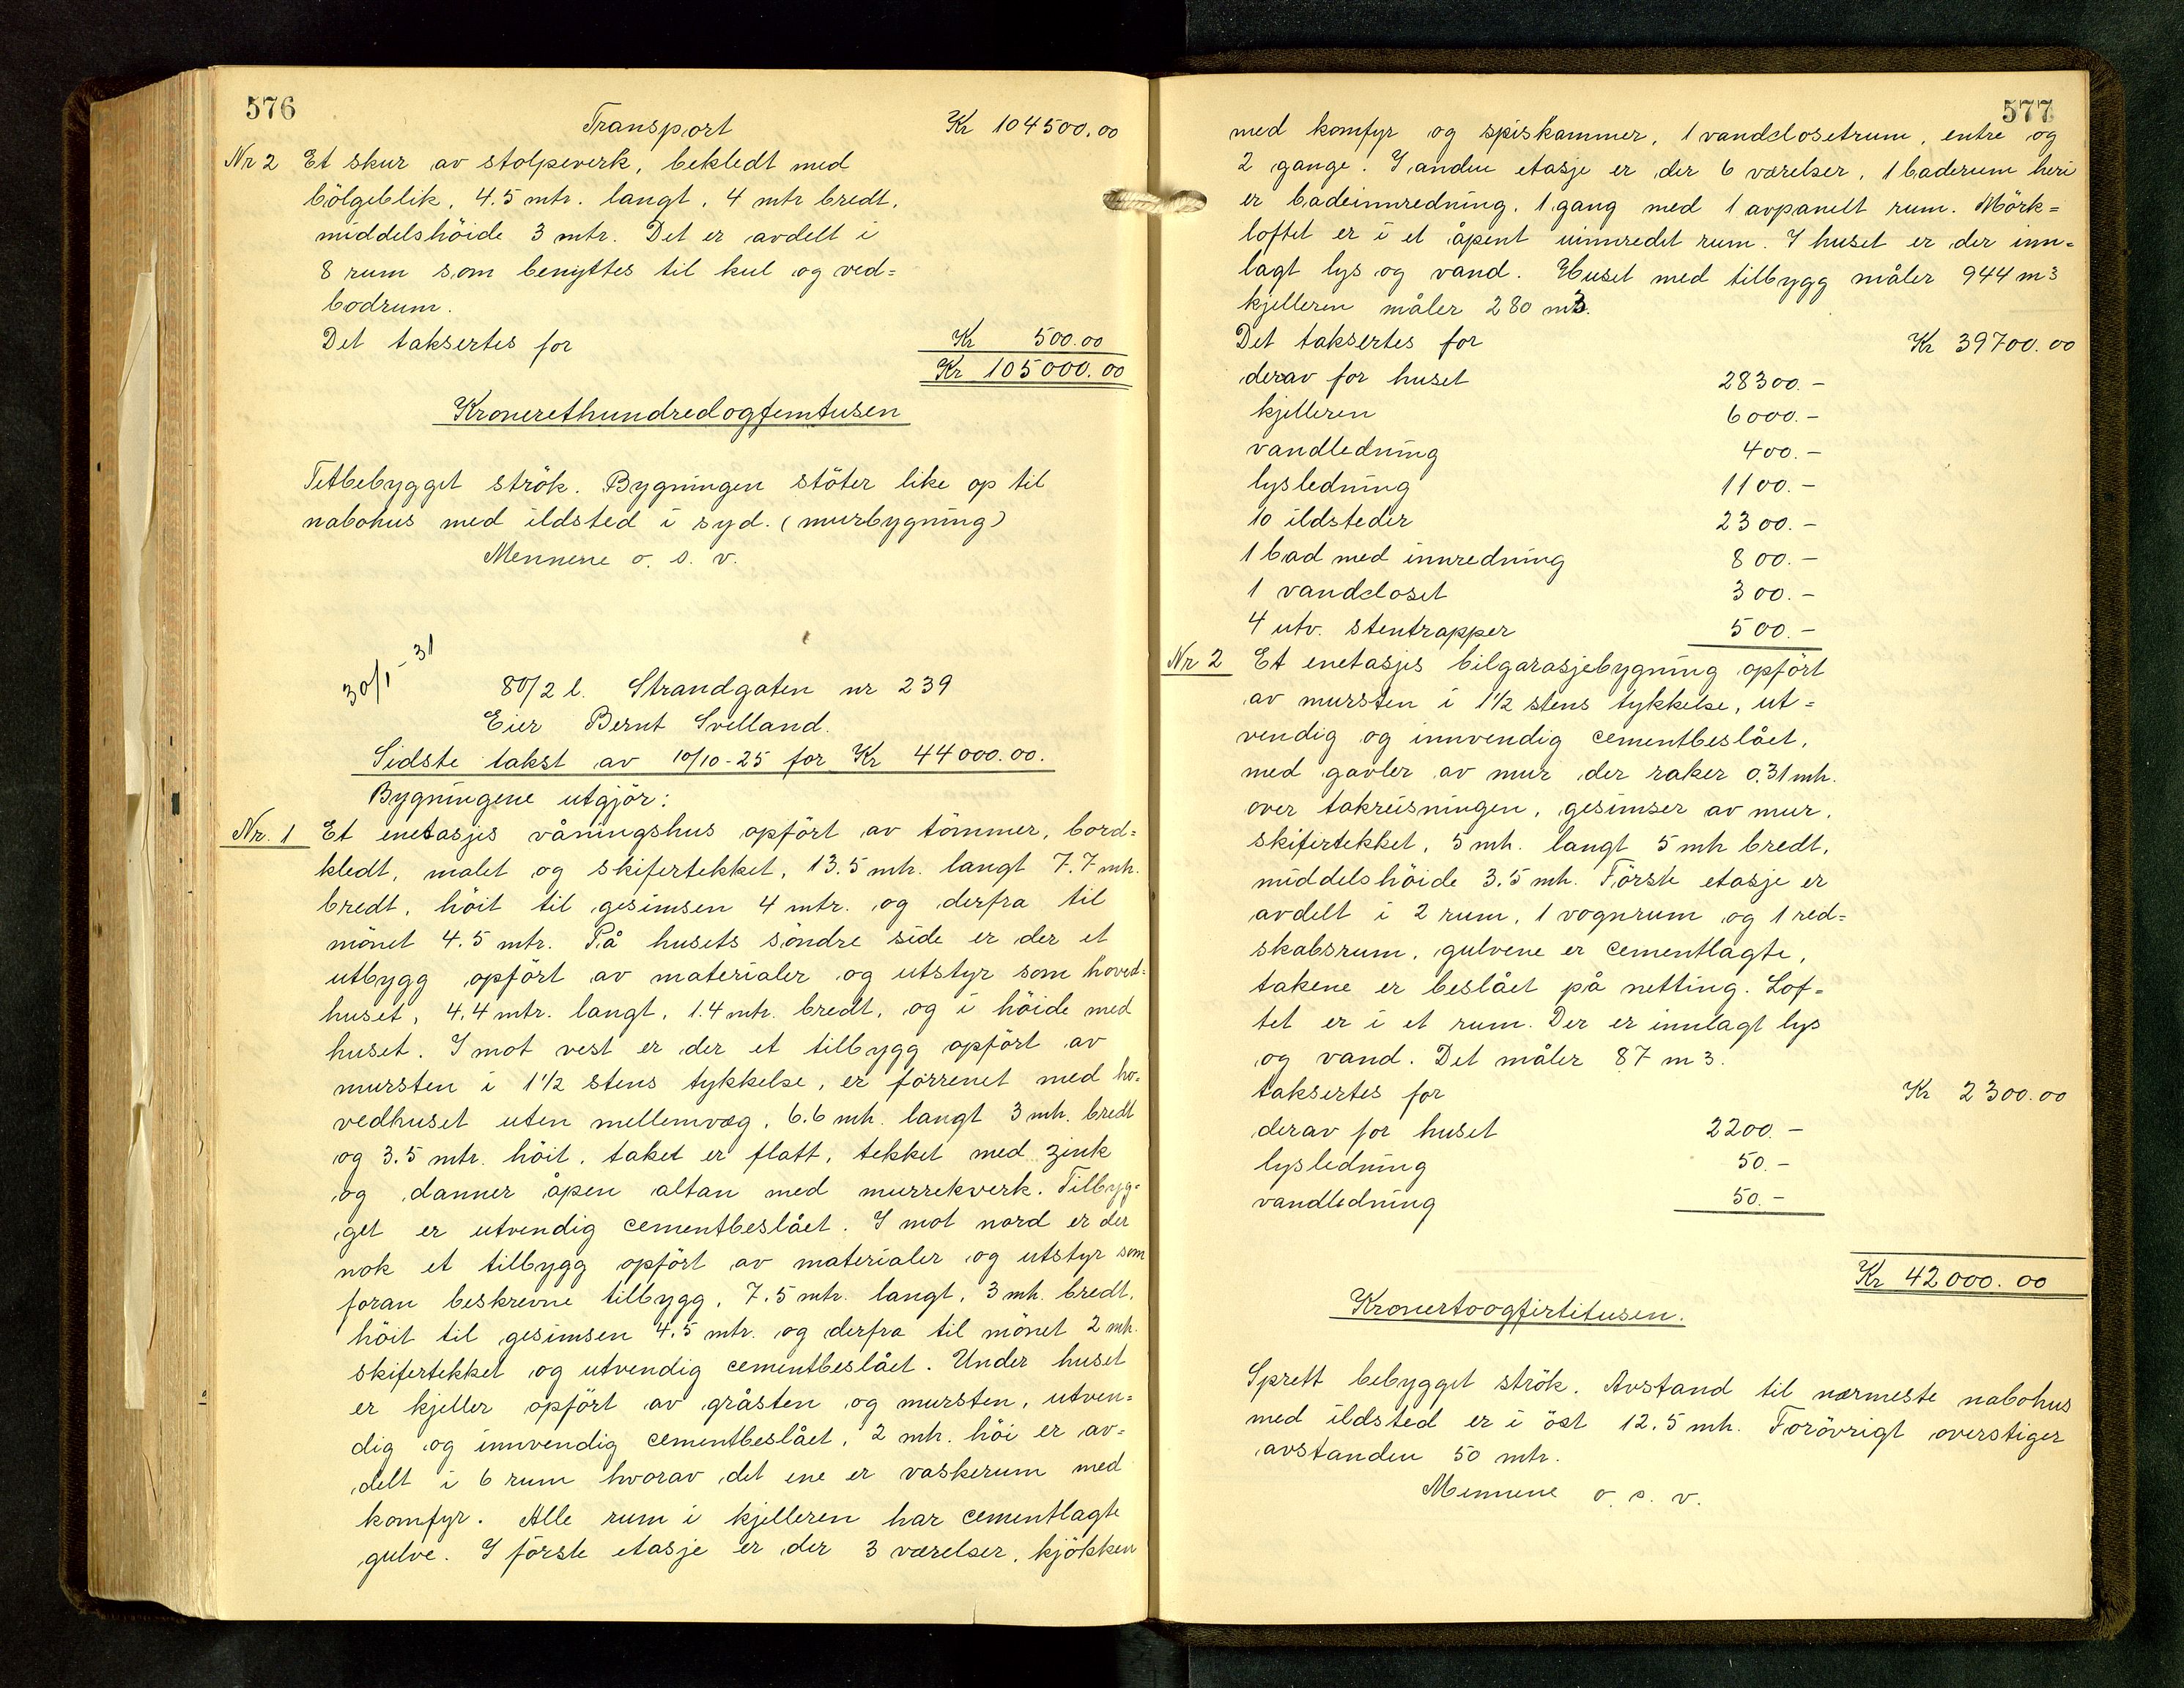 576
Transport Kr 104500.00
Nr 2 Et skur av stolpeverk, bekledt med
bölgeblik, 4.5 mtr. langt, 4 mtr bredt,
middelshöide 3 mtr. Det er avdelt i
8 rum som benyttes til kul og ved=
bodrum.
Det taksertes for Kr 500.00
Kr 105000.00
Kronerethundredogfemtusen
Tetbebygget strök. Bygningen stöter like op til
nabohus med ildsted i syd. (murbygning)
Mennene o. s. v.
30/1-31
80/2 l. Strandgaten nr 239
Eier Bernt Svelland.
Sidste takst av 10/10-25 for Kr 44000.00.
Bygningene utgjör:
Nr. 1 Et enetasjes våningshus opfört av tömmer, bord=
kledt, malet og skifertekket, 13.5 mtr. langt 7.7 mtr.
bredt, höit til gesimsen 4 mtr. og derfra til
mönet 4.5 mtr. På husets söndre side er der et
utbygg opfört av materialer og utstyr som hoved=
huset, 4.4 mtr. langt, 1.4 mtr. bredt, og i höide med
huset. I mot vest er der et tilbygg opfört av
mursten i 1½ stens tykkelse, er förrenet med ho=
vedhuset uten mellemvæg, 6.6 mtr. langt 3 mtr. bredt
og 3.5 mtr. höit, taket er flatt, tekket med zink
og danner åpen altan med murrekverk. Tilbyg=
get er utvendig cementbeslået. I mot nord er der
nok et tilbygg opfört av materialer og utstyr som
foran beskrevne tilbygg, 7.5 mtr. langt, 3 mtr. bredt,
höit til gesimsen 4.5 mtr. og derfra til mönet 2 mtr.
skifertekket og utvendig cementbeslået. Under huset
er kjeller opfört av gråsten og mursten, utven=
dig og innvendig cementbeslået, 2 mtr. höi er av=
delt i 6 rum hvorav det ene er vaskerum med
komfyr. Alle rum i kjelleren har cementlagte
gulve. I förste etasje er der 3 værelser, kjökken
577
med komfyr og spiskammer, 1 vandclosetrum, entre og
2 gange. I anden etasje er der 6 værelser, 1 baderum heri
er badeinnredning, 1 gang med 1 avpanelt rum. Mörk=
loftet er i et åpent uinnredet rum. I huset er der inn=
lagt lys og vand. Huset med tilbygg måler 944 m3
kjelleren måler 280 m3.
Det taksertes for Kr 39700.00
derav for huset 28300.-
kjelleren 6000.-
vandledning 400.-
lysledning 1100.-
10 ildsteder 2300.-
1 bad med innredning 800.-
1 vandcloset 300.-
4 utv. stentrapper 500.-
Nr 2 Et enetasjes bilgarasjebygning opfört
av mursten i 1½ stens tykkelse, ut=
vendig og innvendig cementbeslået,
med gavler av mur der raker 0.31 mtr.
over takreisningen, gesimser av mur,
skifertekket, 5 mtr. langt 5 mtr bredt,
middelshöide 3.5 mtr. Förste etasje er
avdelt i 2 rum, 1 vognrum og 1 red=
skabsrum, gulvene er cementlagte,
takene er beslået på netting. Lof=
tet er i et rum. Der er innlagt lys
og vand. Det måler 87 m3.
taksertes for Kr 2300.00
derav for huset 2200.-
lysledning 50.-
vandledning 50.-
Kr 42000.00
Kronertoogfirtitusen.
Sprett bebygget strök. Avstand til nærmeste nabohus
med ildsted er i öst 12.5 mtr. Forövrigt overstiger
avstanden 50 mtr.
Mennene o. s. v.